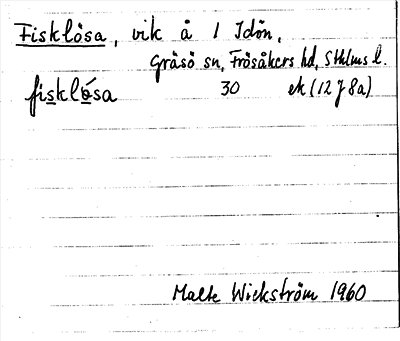 Fisklösa, vik å 1 Idön,
Gräsö sn, Frösåkers hd, Sthlms l.
fisklósa 30 ek (12 J 8a)
Malte Wickström 1960